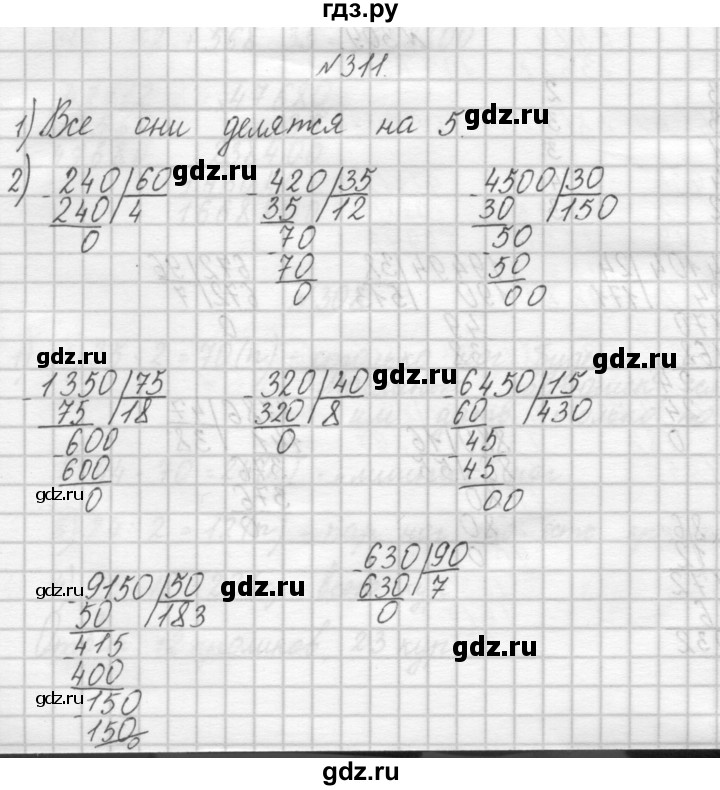 гдз.ру
№311.
1) Все они делятся на 5.
gdz.ru
2)
240 60
240 4
0
gdz.ru
420 35
35 12
70
70
0
gdz.ru
4500 30
30 150
50
50
00
gdz.ru
1350 75
75 18
600
600
0
gdz.ru
320 40
320 8
0
gdz.ru
6450 15
60 430
45
45
00
gdz.ru
gdz.ru
9150 50
50 183
415
400
150
150
0
gdz.ru
gdz.ru
630 90
630 7
0
gdz.ru
gdz.ru
gdz.ru